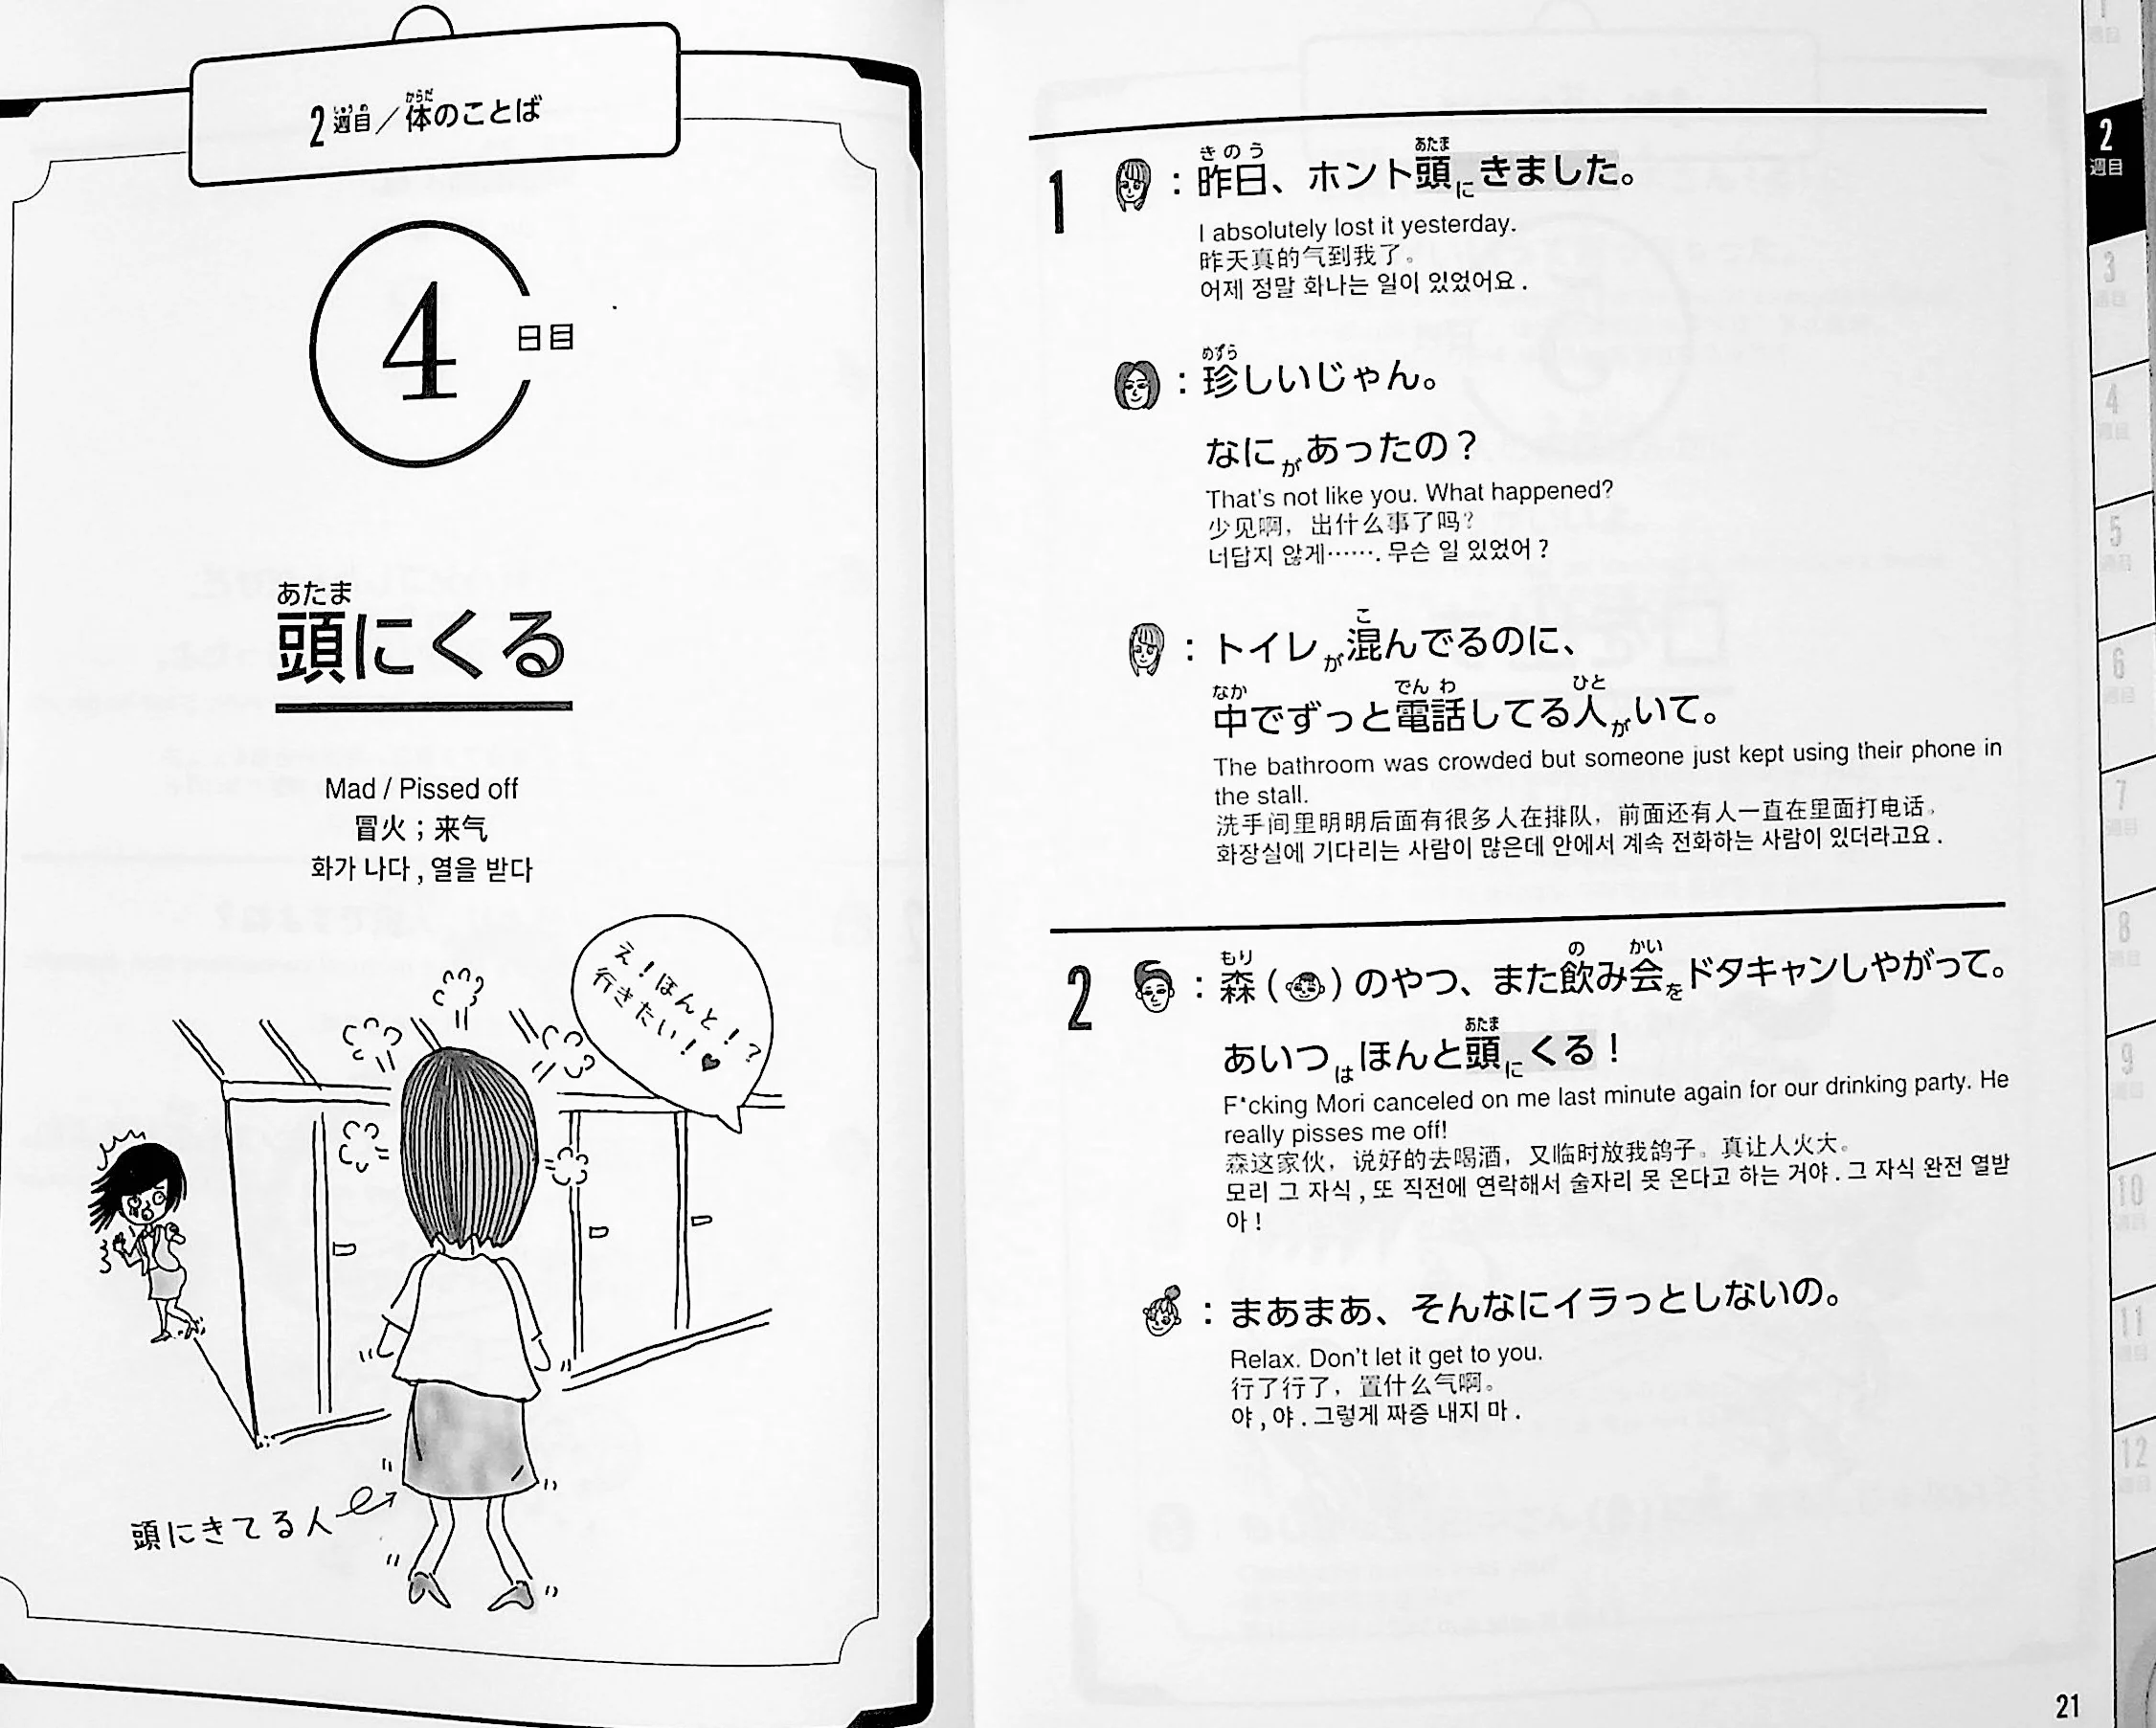 2週目／体のことば
しゅうめ からだ
4日目
あたま
頭にくる
Mad / Pissed off
冒火；来气
화가 나다 , 열을 받다
え！ほんと！？
行きたい！♥
頭にきてる人
1
きのう あたま
：昨日、ホント頭にきました。
I absolutely lost it yesterday.
昨天真的气到我了。
어제 정말 화나는 일이 있었어요 .
めずら
：珍しいじゃん。
なにがあったの？
That's not like you. What happened?
少见啊，出什么事了吗？
너답지 않게……. 무슨 일 있었어 ?
こ
：トイレが混んでるのに、
なか でんわ ひと
中でずっと電話してる人がいて。
The bathroom was crowded but someone just kept using their phone in
the stall.
洗手间里明明后面有很多人在排队，前面还有人一直在里面打电话。
화장실에 기다리는 사람이 많은데 안에서 계속 전화하는 사람이 있더라고요 .
2
もり の かい
：森（）のやつ、また飲み会をドタキャンしやがって。
あたま
あいつはほんと頭にくる！
F*cking Mori canceled on me last minute again for our drinking party. He
really pisses me off!
森这家伙，说好的去喝酒，又临时放我鸽子。真让人火大。
모리 그 자식 , 또 직전에 연락해서 술자리 못 온다고 하는 거야 . 그 자식 완전 열받
아 !
：まあまあ、そんなにイラっとしないの。
Relax. Don't let it get to you.
行了行了，置什么气啊。
야 , 야 . 그렇게 짜증 내지 마 .
21
2
週目
3
週目
4
週目
5
週目
6
週目
7
週目
8
週目
9
週目
10
週目
11
週目
12
週目